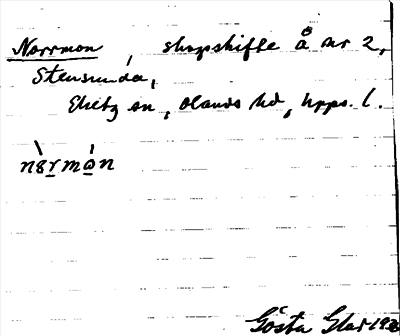 Norrmon, skogsskifte å nr 2,
Stensunda,
Ekeby sn, Olands hd, Upps. l.
Gösta Glar 193